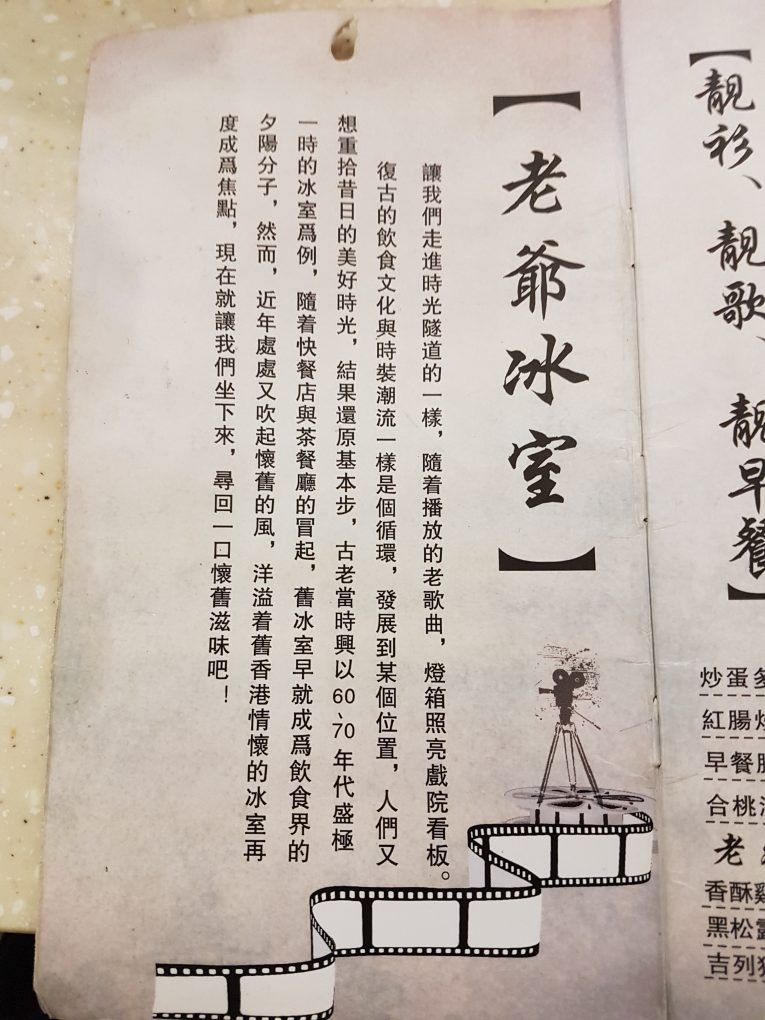 【老爺冰室】
讓我們走進時光隧道的一樣，隨着播放的老歌曲，燈箱照亮戲院看板。
復古的飲食文化與時裝潮流一樣是個循環，發展到某個位置，人們又
想重拾昔日的美好時光，結果還原基本步，古老當時興以60、70年代盛極
一時的冰室爲例，隨着快餐店與茶餐廳的冒起，舊冰室早就成爲飲食界的
夕陽分子，然而，近年處處又吹起懷舊的風，洋溢着舊香港情懷的冰室再
度成爲焦點，現在就讓我們坐下來，尋回一口懷舊滋味吧！
【靚衫、靚歌、靚早餐】
炒蛋多
紅腸
早餐
合桃
老
香酥雞
黑松露
吉列豬